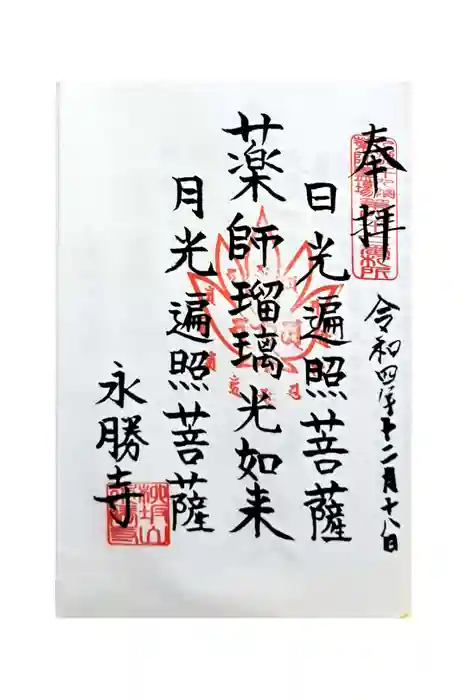 奉拝
令和四年十二月十八日
日光遍照菩薩
薬師瑠璃光如来
月光遍照菩薩
永勝寺